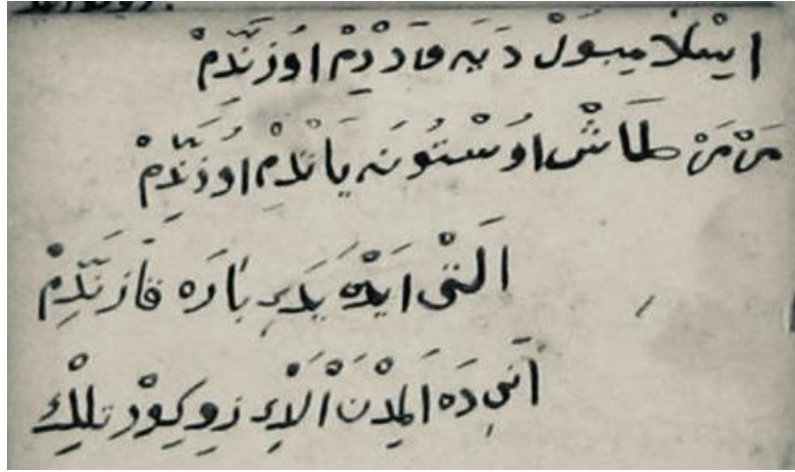 ايسْلامبوَلْ دَيَه واردْدِمْ اوُزَنّدِمْ
مَرْمَرْ طَاشْ اوُسْتُونَه يَاتْدِمْ اوُزَنّدِمْ
اَلْتِى اَيْدَه يَدِي پَارَه قَازَنّدِمْ
اَنِي دَه اَلِمْدَنْ اَلْدِي زوكوْرتلِكْ